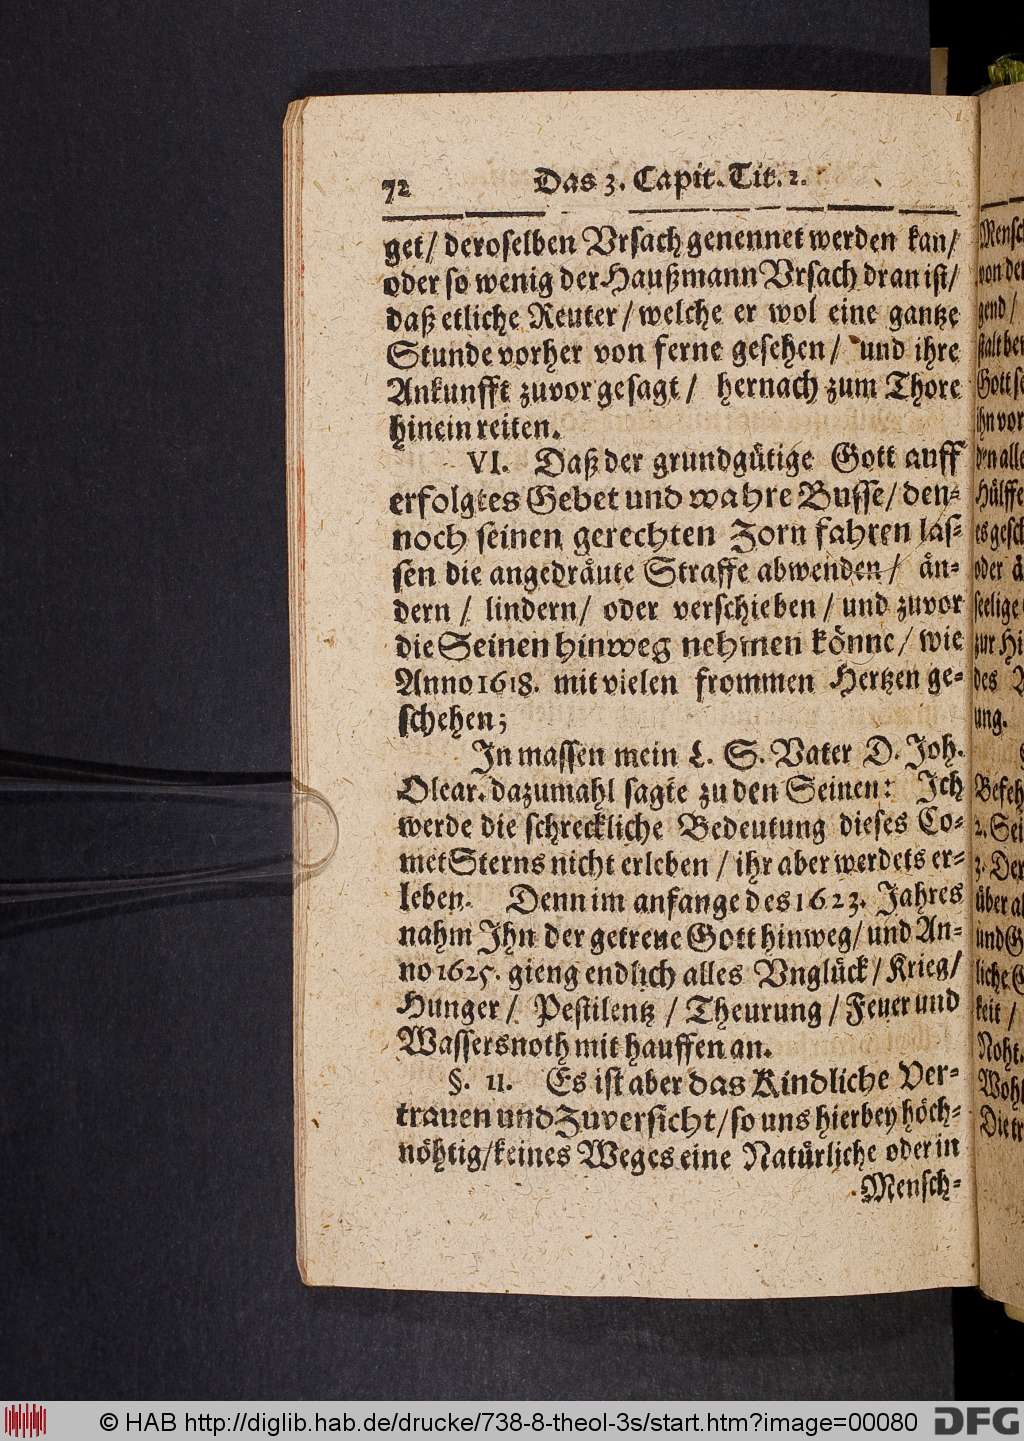 72 Das 3. Capit. Tit. 2.
get/ deroselben Vrsach genennet werden kan/
oder so wenig der Haußmann Vrsach dran ist/
daß etliche Reuter/ welche er wol eine gantze
Stunde vorher von ferne gesehen/ und ihre
Ankunfft zuvor gesagt/ hernach zum Thore
hinein reiten.
VI. Daß der grundgütige Gott auff
erfolgtes Gebet und wahre Busse/ den-
noch seinen gerechten Zorn fahren las-
sen die angedräute Straffe abwenden/ än-
dern/ lindern/ oder verschieben/ und zuvor
die Seinen hinweg nehmen könne/ wie
Anno 1618. mit vielen frommen Hertzen ge-
schehen;
In massen mein L. S. Vater D. Joh.
Olear. dazumahl sagte zu den Seinen: Ich
werde die schreckliche Bedeutung dieses Co-
met Sterns nicht erleben/ ihr aber werdets er-
leben. Denn im anfange des 1623. Jahres
nahm Ihn der getreue Gott hinweg/ und An-
no 1625. gieng endlich alles Vnglück/ Krieg/
Hunger/ Pestilentz/ Theurung/ Feuer und
Wassersnoth mit hauffen an.
§. II. Es ist aber das Kindliche Ver-
trauen und Zuversicht/ so uns hierbey höch-
nöhtig/ keines Weges eine Natürliche oder in
Mensch-
Mensch
von der
gend/
stalt be
Gott se
ihn vor
den alle
Hülffe
es gesch
oder ä
seelige
zur Hi
des
ung.
Befeh
2. Sei
3. Der
über al
und G
liche G
keit/
Noht.
Wohl
Die tr
© HAB http://diglib.hab.de/drucke/738-8-theol-3s/start.htm?image=00080
DFG